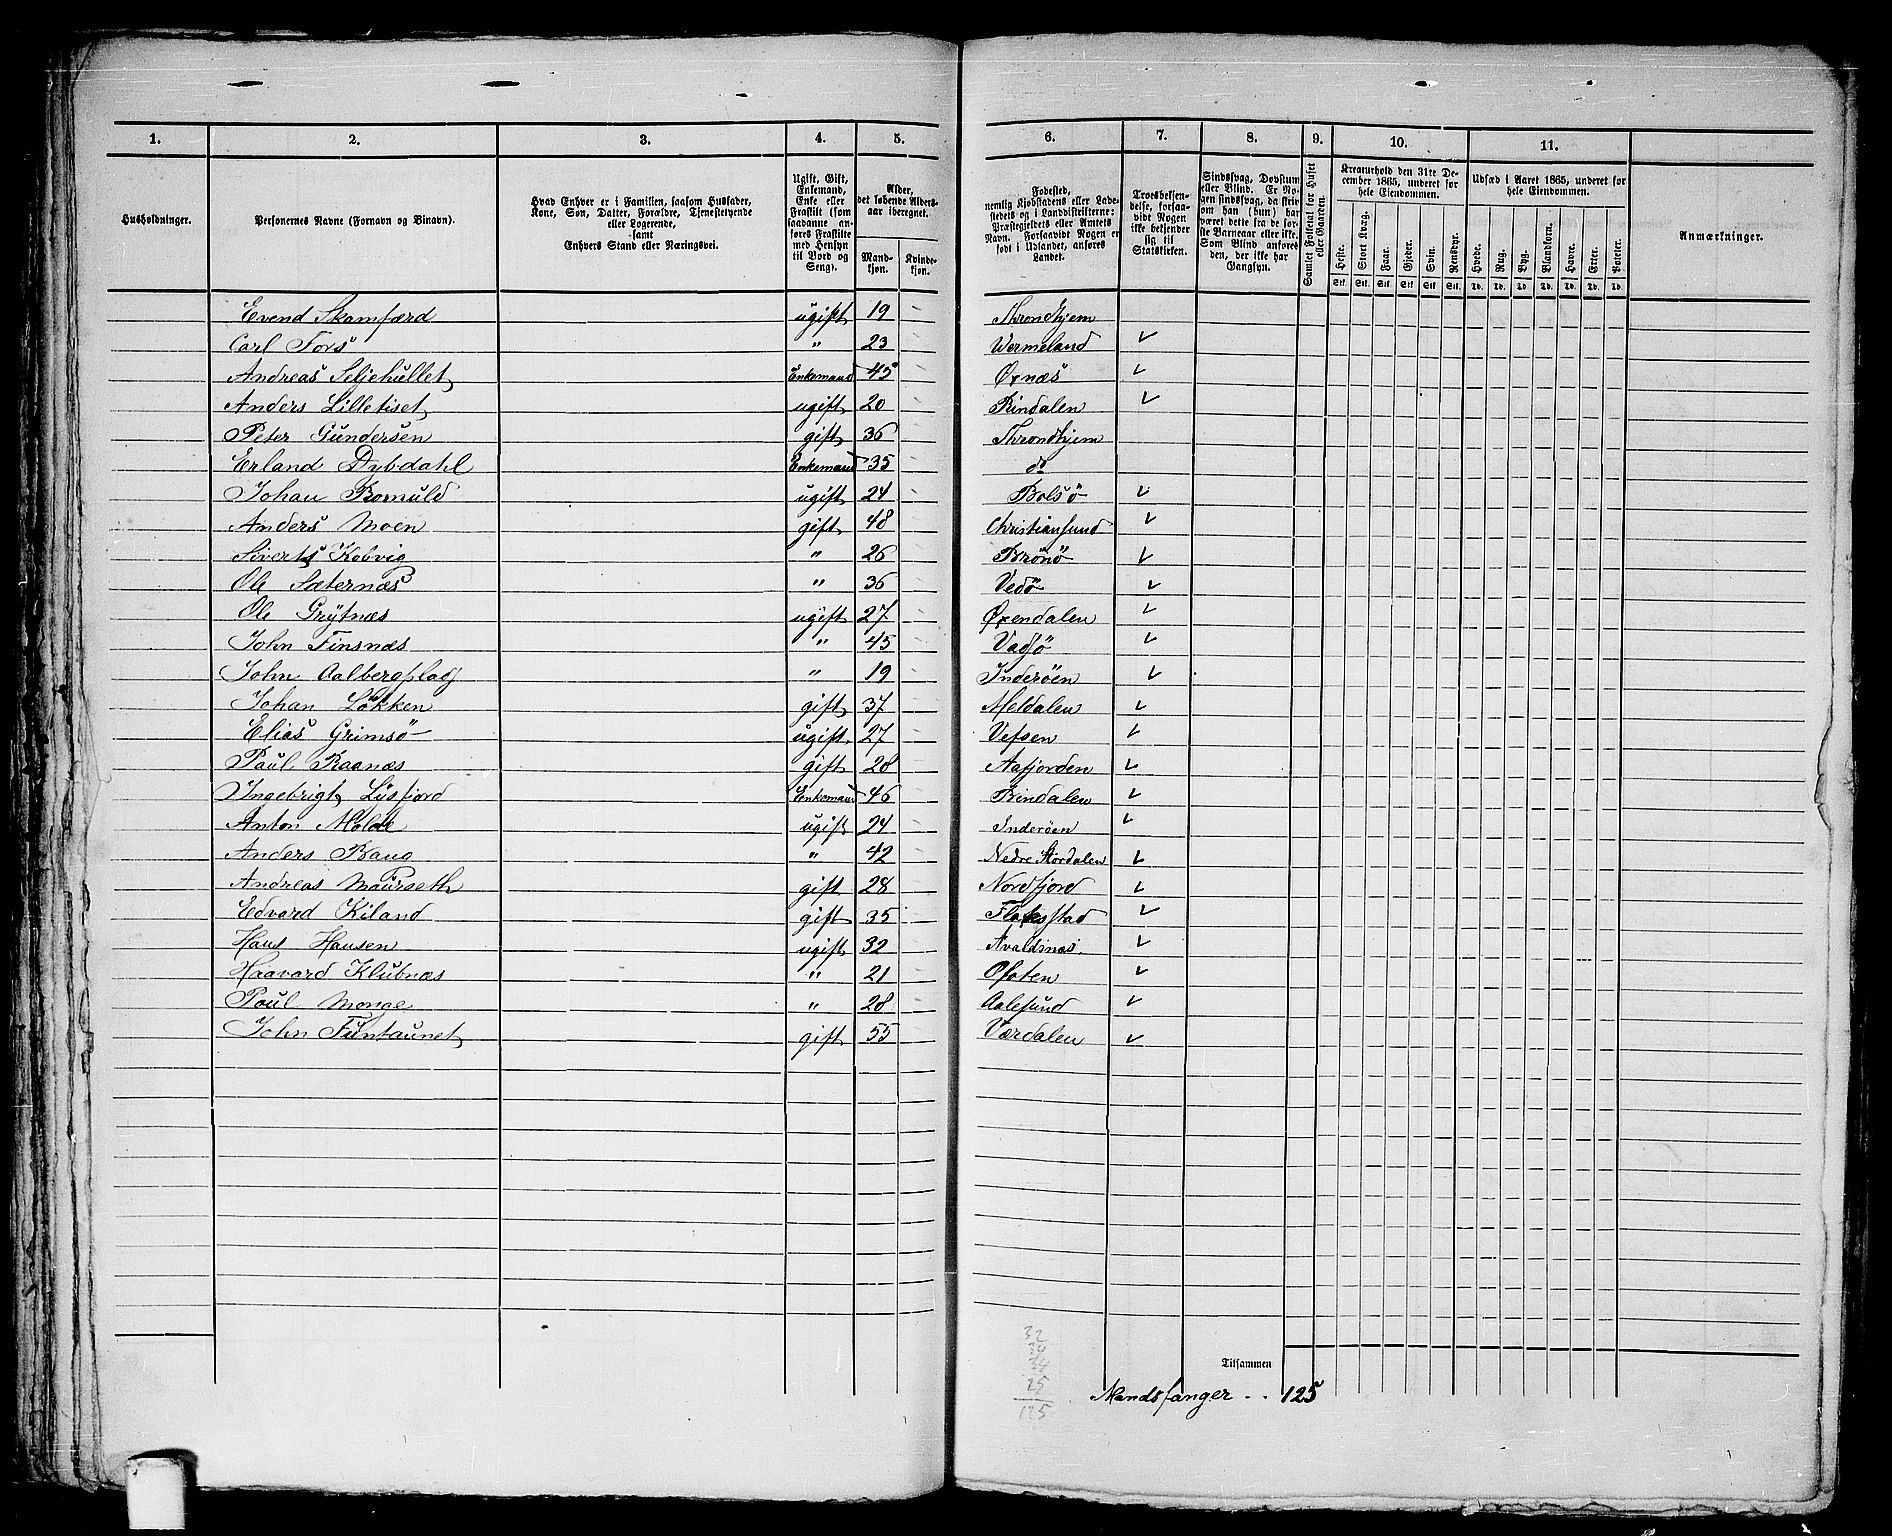 1. 2. 3. 4. 5. 6. 7. 8. 9. 10. 11.
Husholdninger.
Personernes Navne (Fornavn og Binavn).
Hvad Enhver er i Familien, saasom Husfader,
Kone, Søn, Datter, Forældre, Tjenestetyende
eller Logerende,
samt
Enhvers Stand eller Næringsvei.
Ugift, Gift,
Enkemand,
Enke eller
Fraskilt (som
saadanne an-
føres Fraskilte
med Hensyn
til Bord og
Seng).
Alder,
det løbende Alders-
aar iberegnet.
Mand-
kjøn.
Kvinde-
kjøn.
Fødested,
nemlig Kjøbstadens eller Lade-
stedets og i Landdistrikterne:
Præstegjeldets eller Amtets
Navn. Forsaavidt Nogen er
født i Udlandet, anføres
Landet.
Troesbekjen-
delse, forsaa-
vidt Nogen
ikke bekjender
sig til
Statskirken.
Sindssvag, Døvstum
eller Blind. Er No-
gen sindssvag, da skriv
om han (hun) har
været dette fra de før-
ste Barneaar eller ikke.
Som Blind anføres
den, der ikke har
Gangsyn.
Samlet Folketal for Huset
eller Gaarden.
Kreaturhold den 31te De-
cember 1865, underet for
hele Eiendommen.
Heste. Stort Kvæg. Faar. Gjeder. Svin. Rensdyr.
Stk. Stk. Stk. Stk. Stk. Stk.
Udsæd i Aaret 1865, underet for
hele Eiendommen.
Hvede. Rug. Byg. Blandkorn. Havre. Erter. Poteter.
Td. Td. Td. Td. Td. Td. Td.
Anmærkninger.
Evend Skamfærd ugift 19 Throndhjem
Carl Fors " 23 Wermeland
Andreas Seljehullet Enkemand 45 Øxnæs
Anders Lilletiset ugift 20 Rindalen
Peter Gundersen gift 36 Throndhjem
Erland Dybdahl Enkemand 35 do
Johan Romuld ugift 24 Bolsö
Anders Moen gift 48 Christiansund
Siverts Kobvig " 26 Brönö
Ole Sæternæs " 36 Vedö
Ole Grytnæs ugift 27 Øxendalen
John Finsnæs " 45 Vadsö
John Aalbergplads " 19 Inderöen
Johan Løkken gift 37 Meldalen
Elias Grimsö ugift 27 Vefsen
Paul Raanæs gift 28 Aafjorden
Ingebrigt Lysfjord Enkemand 46 Rindalen
Anton Molde ugift 24 Inderöen
Anders Braug " 42 Nedre Stördalen
Andreas Maurseth gift 28 Nordfjord
Edvard Kiland gift 35 Flakstad
Hans Hansen ugift 32 Avaldsnæs
Haavard Klubnæs " 21 Ofoten
Poul Monge " 28 Aalesund
John Funtaunet gift 55 Værdalen
32
34
34
25
125
Tilsammen
Mandsfanger . . 125